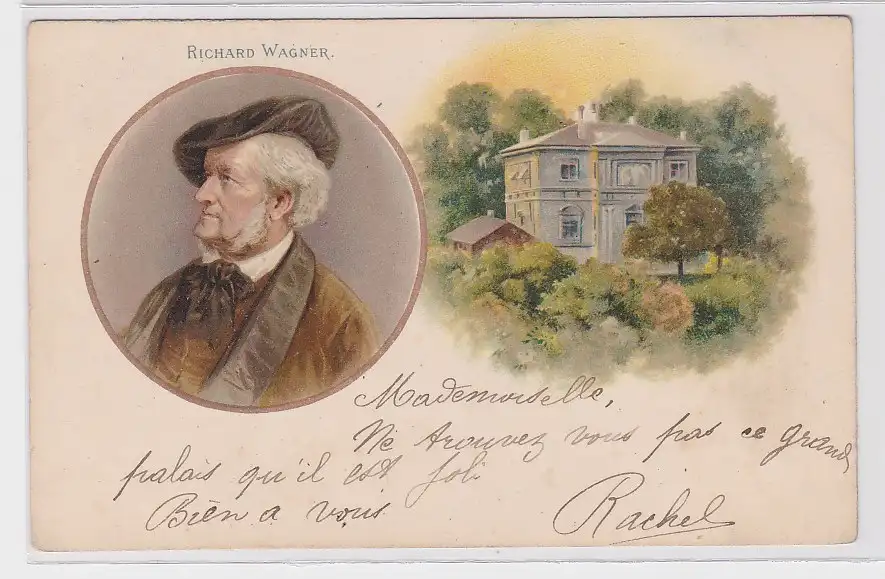 RICHARD WAGNER.
Mademoiselle,
Ne trouvez vous pas ce grand
palais qu'il est joli
Bien a vous
Rachel